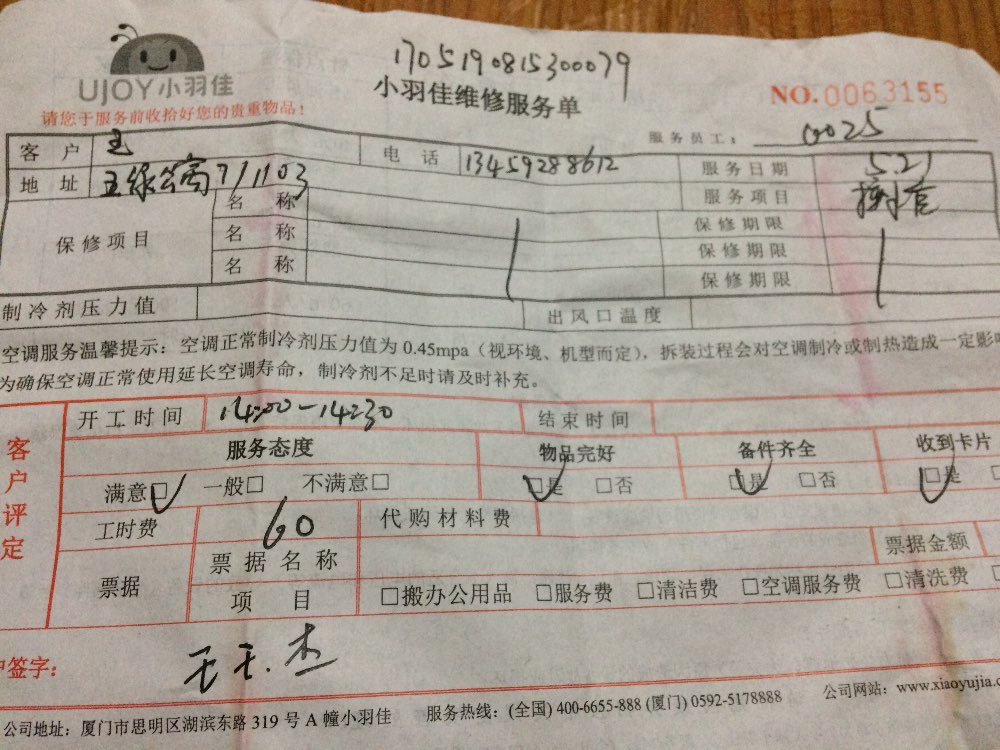 1705190815300079
UJOY小羽佳
小羽佳维修服务单
NO.0063155
请您于服务前收拾好您的贵重物品！
服务员工： 0025
客户 王 电话 13459288612 服务日期 5.21
地址 公寓7/1103 服务项目
保修项目 名称 保修期限
名称 保修期限
名称 保修期限
制冷剂压力值 出风口温度
空调服务温馨提示：空调正常制冷剂压力值为 0.45mpa（视环境、机型而定），拆装过程会对空调制冷或制热造成一定影
为确保空调正常使用延长空调寿命，制冷剂不足时请及时补充。
客户评定
开工时间 14:00-14:30 结束时间
服务态度 物品完好 备件齐全 收到卡片
满意□ 一般□ 不满意□ □是 □否 □是 □否 □是
工时费 60 代购材料费
票据 票据名称 票据金额
项目 □搬办公用品 □服务费 □清洁费 □空调服务费 □清洗费
户签字：
公司地址：厦门市思明区湖滨东路 319 号 A 幢小羽佳 服务热线：(全国) 400-6655-888 (厦门) 0592-5178888 公司网站：www.xiaoyujia.